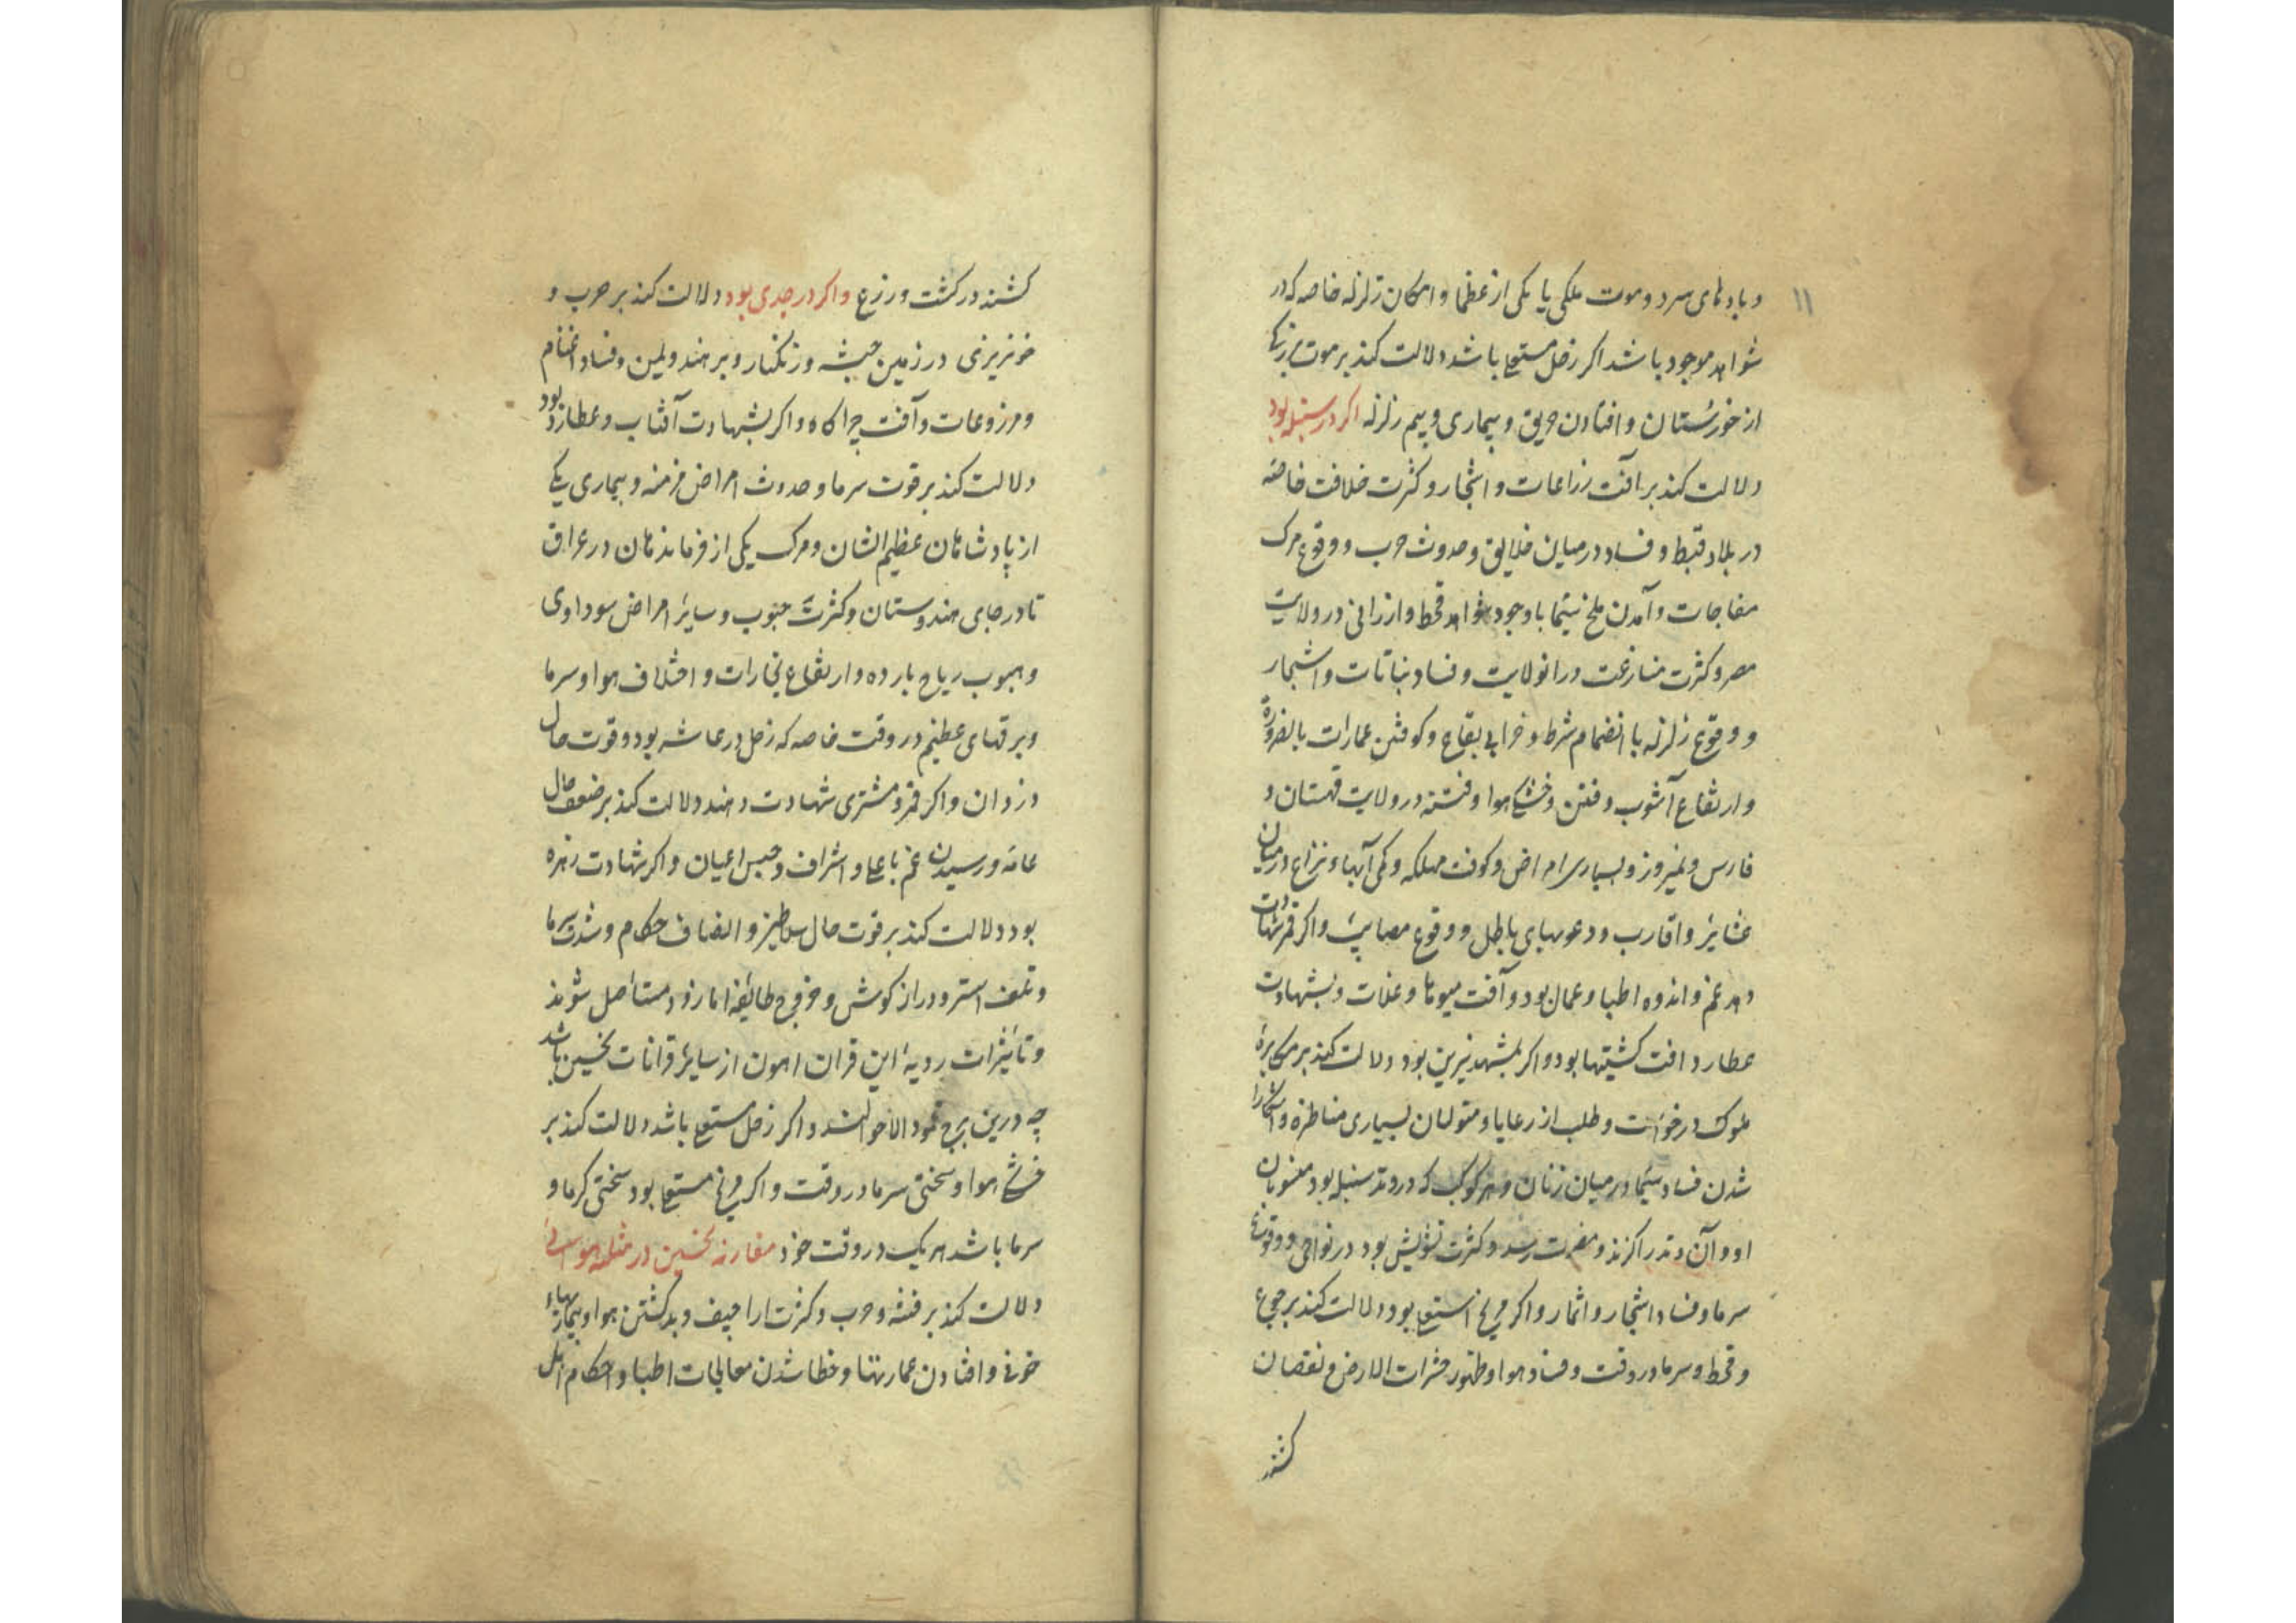 ۱۱
و بادهای سرد و موت ملکی یا یکی از عظما و امکان زلزله خاصه که در
شواهد موجود باشد اکر زحل مستعلی باشد دلالت کند بر موت بزرکی
از خوزستان و افتادن حریق و بیماری و بیم زلزله اکر در سنبله بود
دلالت کند بر افت زراعات و اشجار و کثرت خلافت خاصه
در بلاد قبط و فساد در میان خلایق و حدوث حرب و وقوع مرک
مفاجات و آمدن ملخ سیما با وجود شواهد قحط و ارزانی در ولایت
مصر و کثرت منازعت در انولایت و فساد نباتات و اشجار
و وقوع زلزله با انضمام شرط و خرابی بقاع و کوفتن عمارات بالضرورة
و ارتفاع آشوب و فتن و خشکی هوا و فتنه در ولایت قهستان و
فارس و نیمروز و بسیاری امراض و کوفت مهلکه و کمی آبها و نزاع در میان
عشایر و اقارب و دعویهای باطل و وقوع مصایب و اکر قمر شهادت
دهد غم و اندوه اطبا و عمال بود و آفت میوها و غلات و بشهادت
عطارد افت کشتیها بود و اکر بمشهد نیرین بود دلالت کند بر مکابرهٔ
ملوک در خواست و طلب از رعایا و متولیان بسیاری مناظره و آشکارا
شدن فساد سیما در میان زنان و هر کوکب که در وتد سنبله بود منسوبان
او و آن وتد را کزند و مضرت رسد و کثرت تشویش بود در نواحی و وقوع
سرما و فساد اشجار و اثمار و اکر مریخ استعلی بود دلالت کند بر جوع
و قحط و سرما در وقت و فساد هوا و ظهور حشرات الارض و نقصان
کشند
کشند در کشت و زرع و اکر در جدی بود دلالت کند بر حرب و
خونریزی در زمین حبشه و زنکبار و بر هند و یمن و فساد اغنام
و مزروعات و آفت چراکاه و اکر بشهادت آفتاب و عطارد بود
دلالت کند بر قوت سرما و حدوث امراض مزمنه و بیماری یکی
از پادشاهان عظیم الشان و مرک یکی از فرماندهان در عراق
تا در جای هندوستان و کثرت جنوب و سایر امراض سوداوی
و هبوب ریاح بارده و ارتفاع بخارات و اختلاف هوا و سرما
و برقهای عظیم در وقت خاصه که زحل در عاشر بود و قوت حال
دزدان و اکر قمر و مشتری شهادت دهند دلالت کند بر ضعف حال
عامه و رسیدن غم باعلی و اشراف و حبس اعیان و اکر شهادت زهره
بود دلالت کند بر قوت حال سلاطین و انصاف حکام و شدت سرما
و تلف استر و دراز کوش و خروج طایفه اما زود مستاصل شوند
و تاثیرات ردیه این قران اهون از سایر قرانات نحسین باشد
چه درین برج محمود الاحوالند و اکر زحل مستعلی باشد دلالت کند بر
خشکی هوا و سختی سرما در وقت و اکر مریخ مستعلی بود سختی کرما و
سرما باشد هر یک در وقت خود مقارنه نحسین در مثلثه هوائی
دلالت کند بر فتنه و حرب و کثرت اراجیف و بد کشتن هوا و بیماریهاء
خونی و افتادن عمارتها و خطا شدن معالجات اطبا و احکام اهل